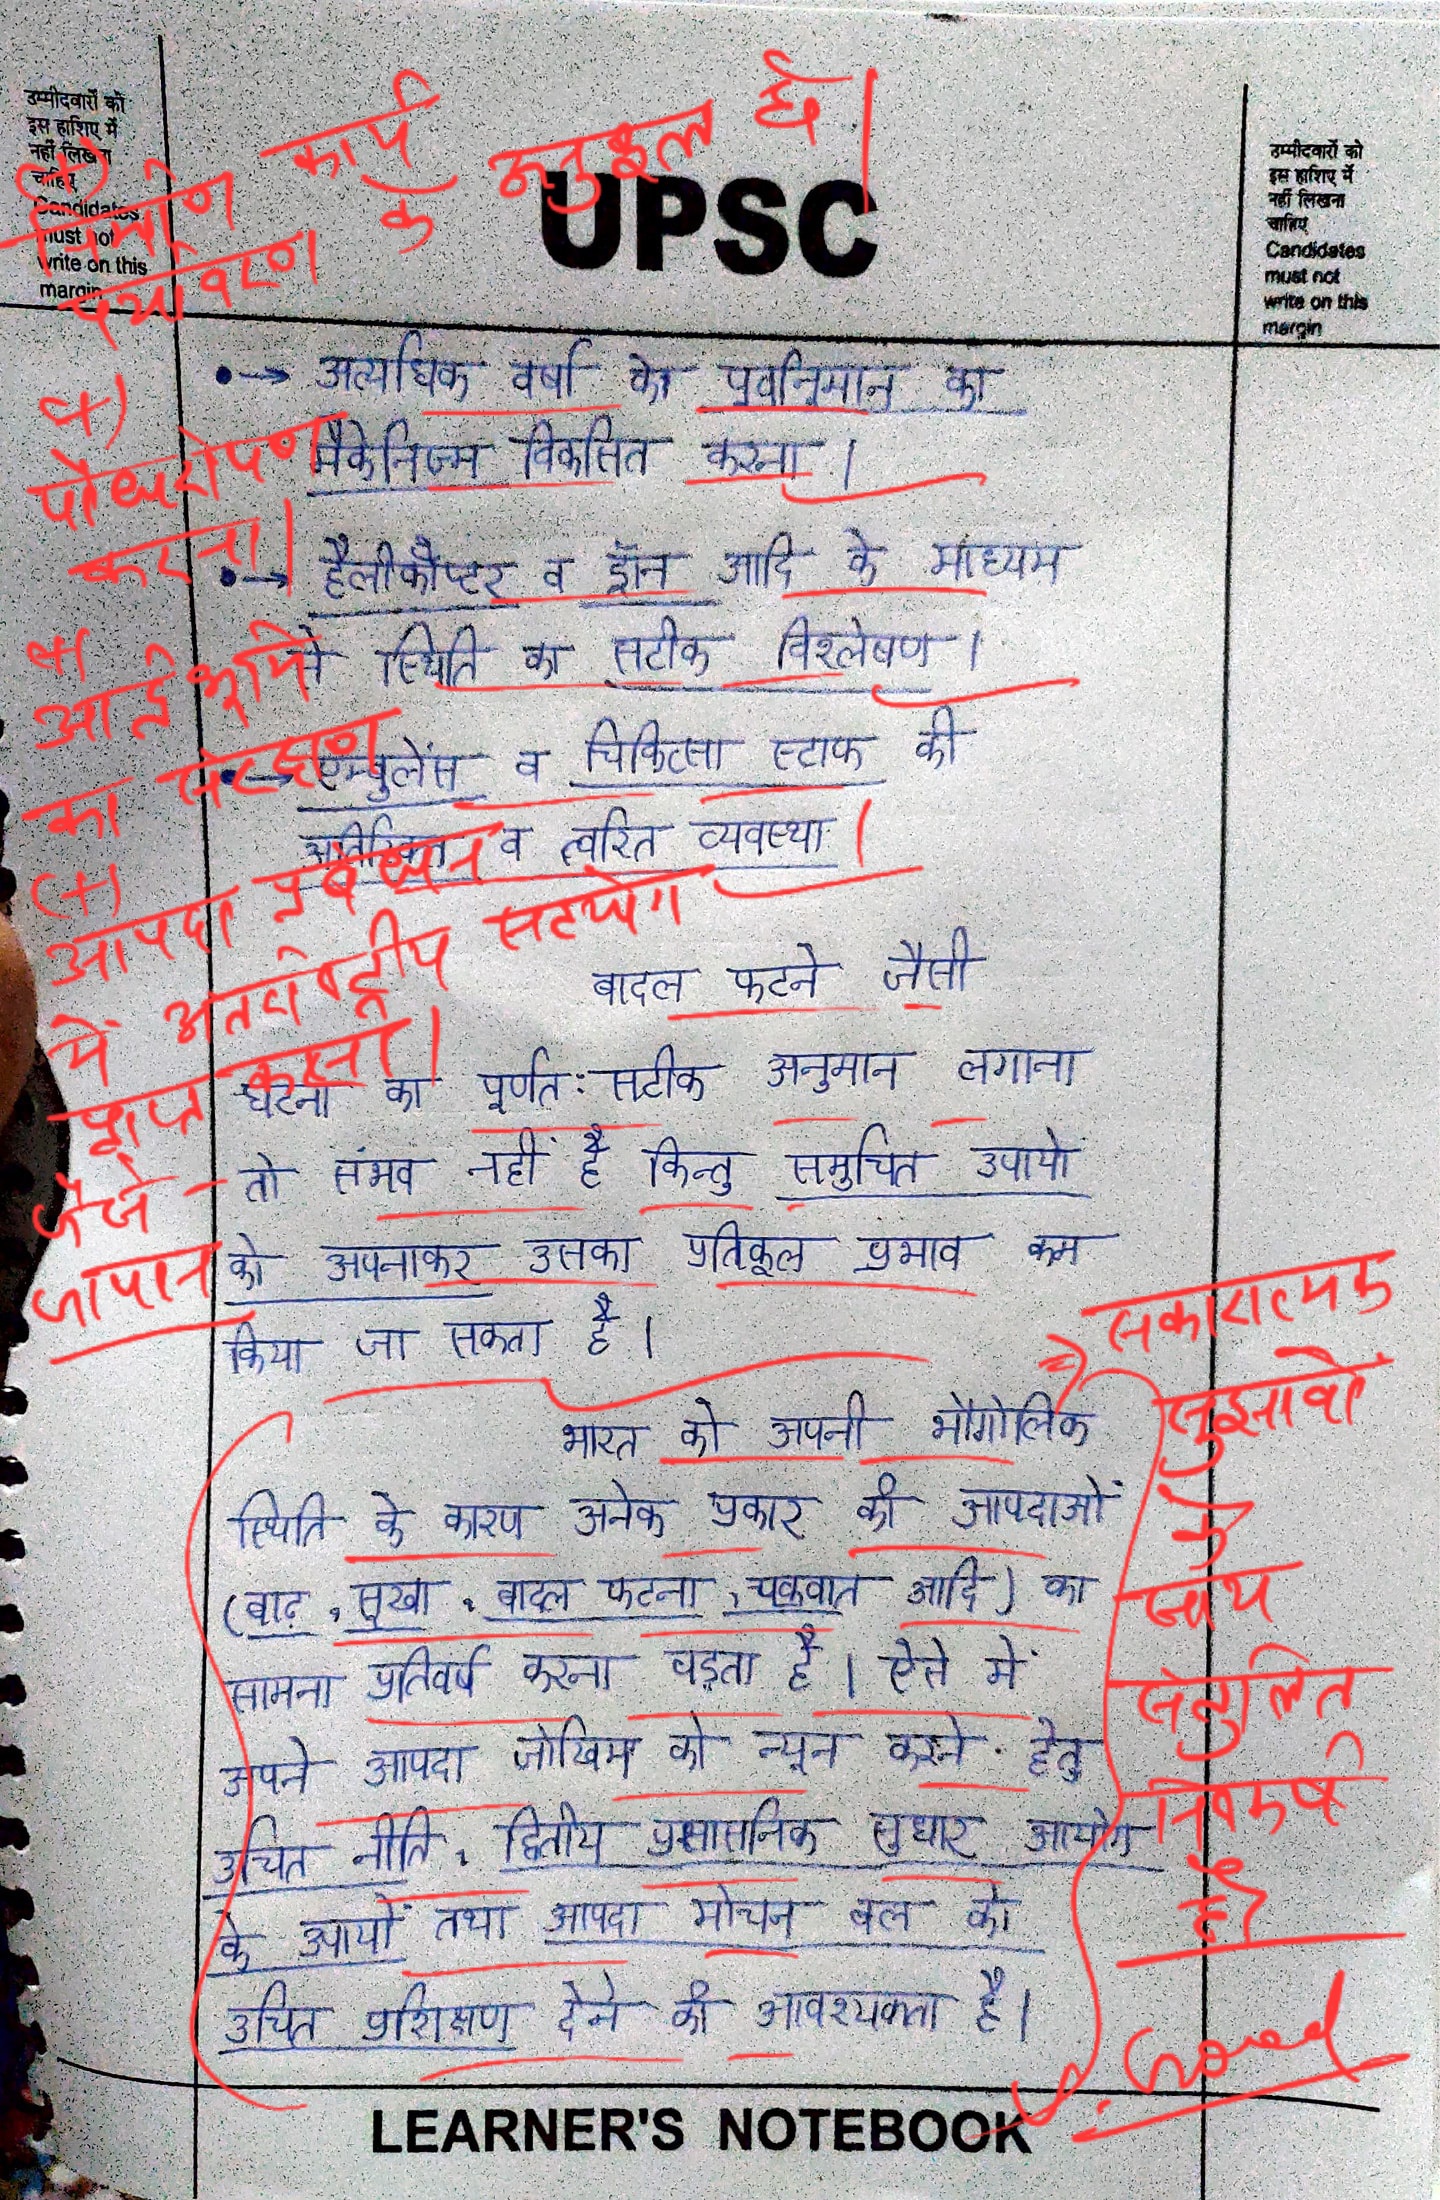 उम्मीदवारों को
इस हाशिए में
नहीं लिखना
चाहिए
Candidates
must not
write on this
margin
UPSC
उम्मीदवारों को
इस हाशिए में
नहीं लिखना
चाहिए
Candidates
must not
write on this
margin
(+)
निर्माण कार्य
पर्यावरण के अनुकूल हो।
+)
पौधरोपण
करना।
+)
आर्द्रभूमि
का संरक्षण
(+)
आपदा प्रबंधन
में अंतर्राष्ट्रीय सहयोग
प्राप्त करना।
जैसे -
जापान
•→ अत्यधिक वर्षा के पूर्वानुमान का
मैकेनिज्म विकसित करना।
•→ हैलीकॉप्टर व ड्रॉन आदि के माध्यम
से स्थिति का सटीक विश्लेषण।
•→ एम्बुलेंस व चिकित्सा स्टाफ की
अतिरिक्त व त्वरित व्यवस्था।
बादल फटने जैसी
घटना का पूर्णत: सटीक अनुमान लगाना
तो संभव नहीं है किन्तु समुचित उपायो
को अपनाकर उसका प्रतिकूल प्रभाव कम
किया जा सकता है।
भारत को अपनी भौगोलिक
स्थिति के कारण अनेक प्रकार की आपदाओं
(बाढ़, सूखा, बादल फटना, चक्रवात आदि) का
सामना प्रतिवर्ष करना पड़ता है। ऐसे में
अपने आपदा जोखिम को न्यून करने हेतु
उचित नीति, द्वितीय प्रशासनिक सुधार आयोग
के उपायों तथा आपदा मोचन बल को
उचित प्रशिक्षण देने की आवश्यकता है।
सकारात्मक
सुझावों
के
साथ
संतुलित
निष्कर्ष
है।
Good
LEARNER'S NOTEBOOK